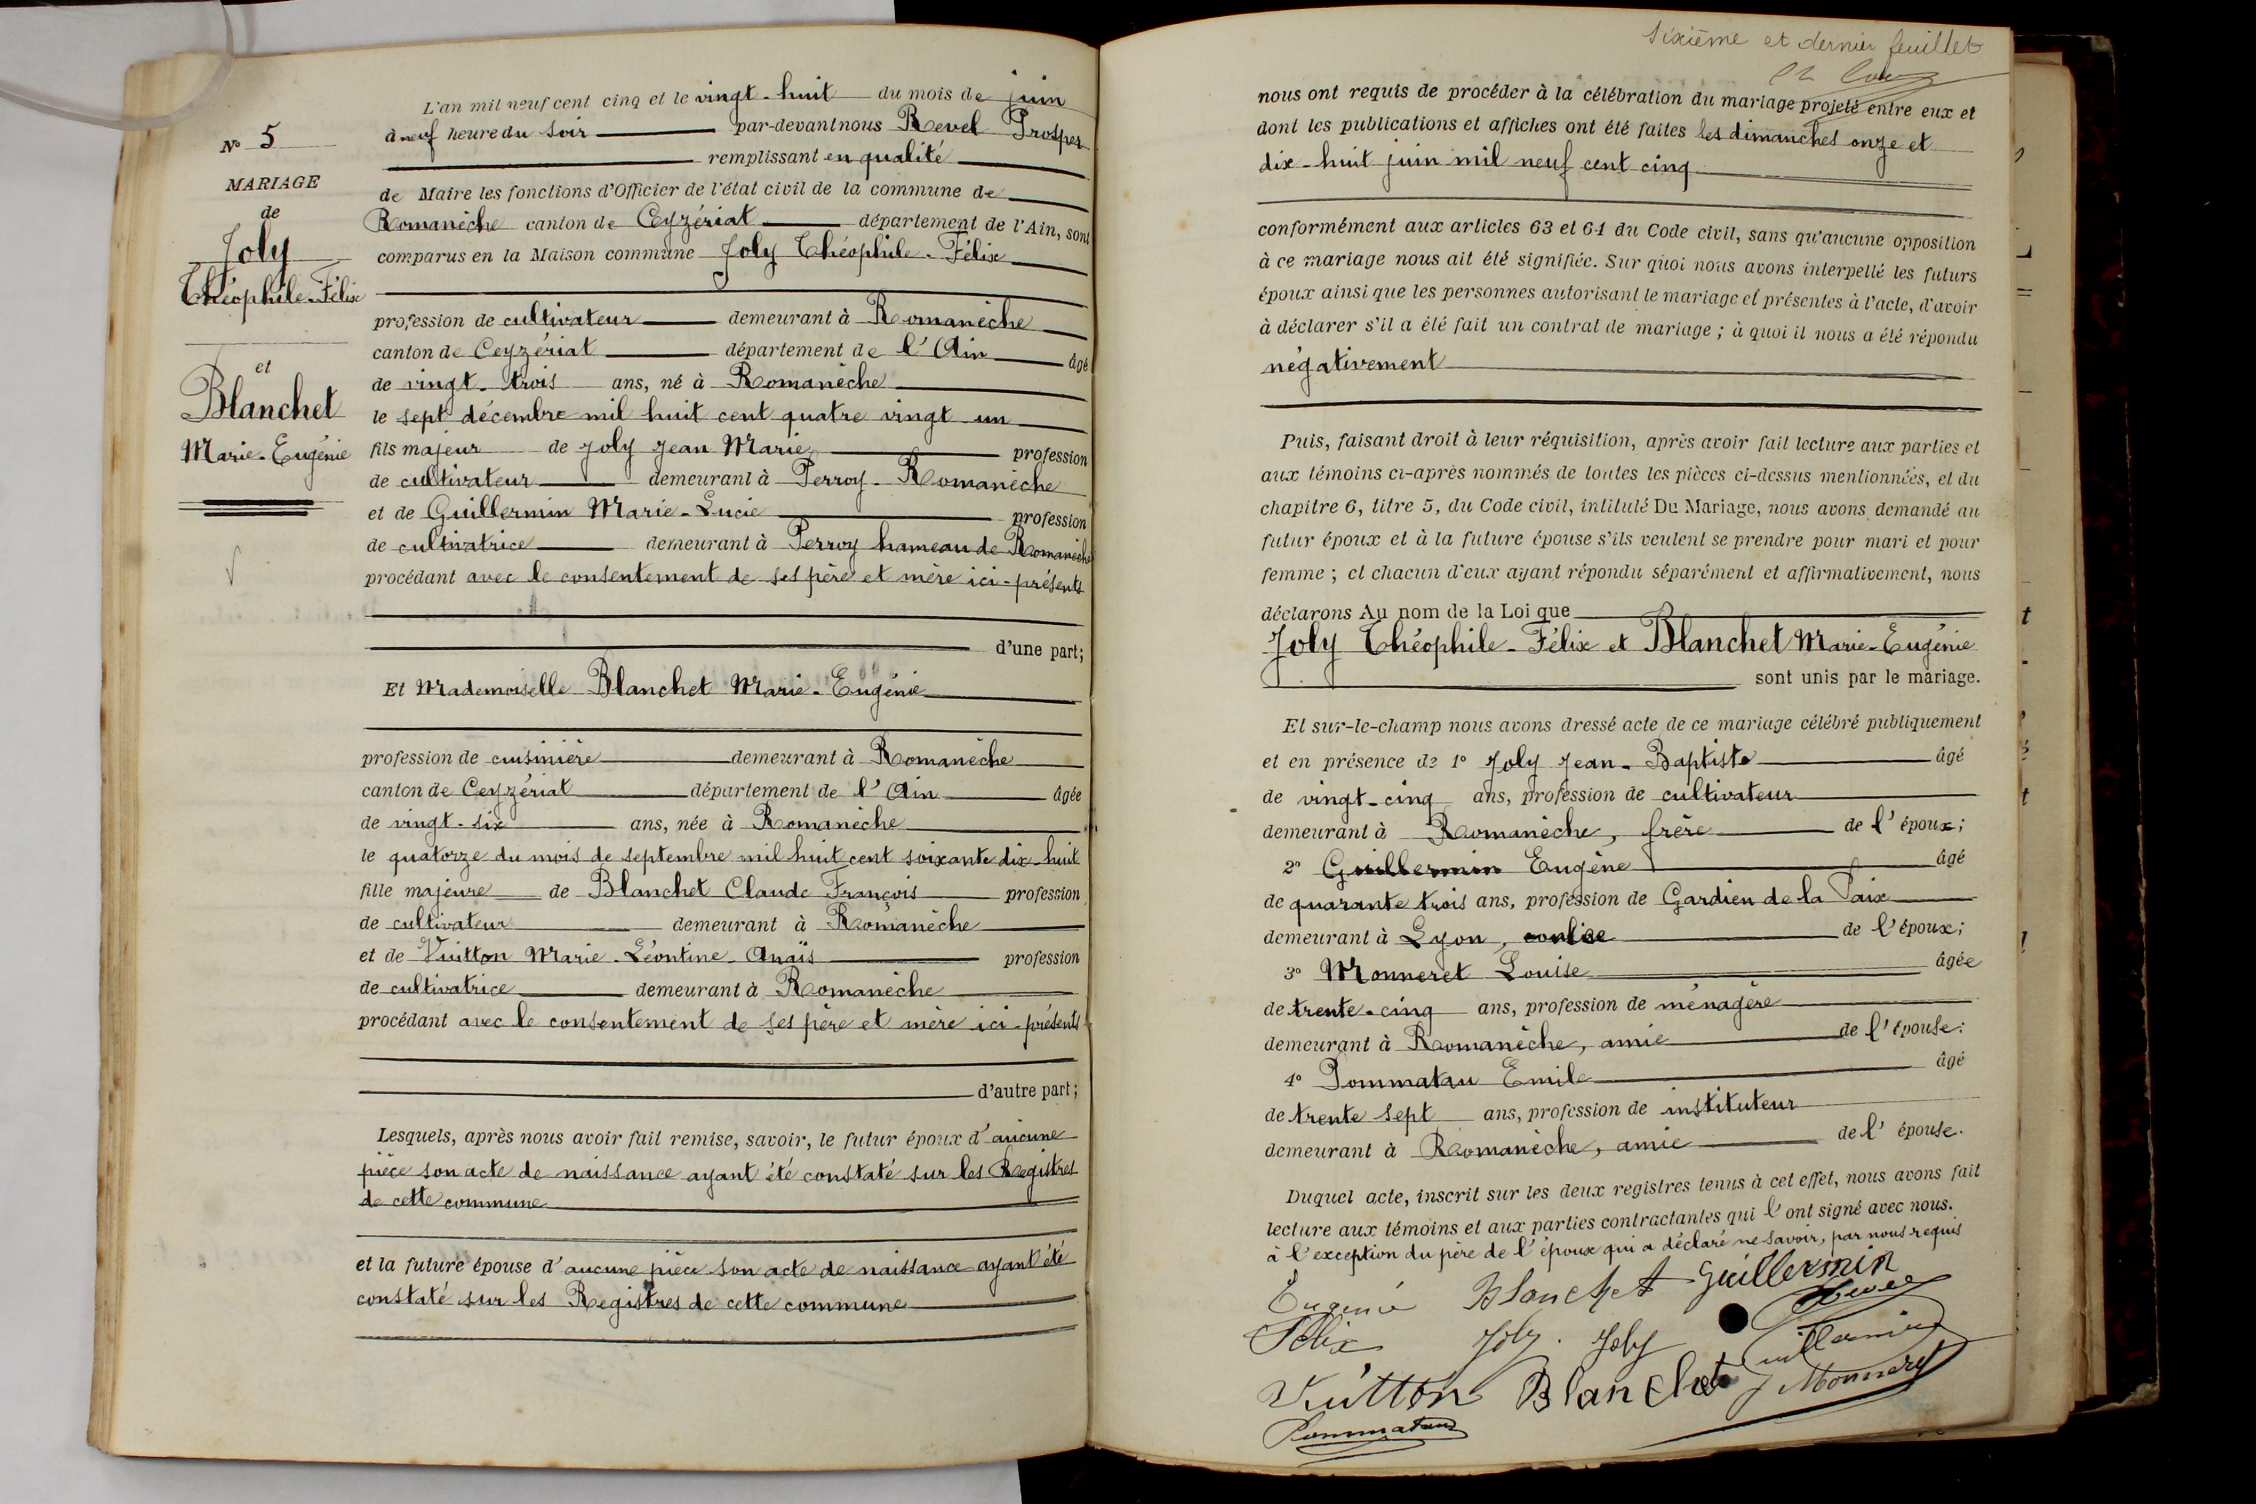 N° 5
MARIAGE
de
Joly
Théophile-Félix
et
Blanchet
Marie-Eugénie
L'an mil neuf cent cinq et le vingt-huit du mois de juin
à neuf heure du soir par-devant nous Revel Prosper
remplissant en qualité
de Maire les fonctions d'Officier de l'état civil de la commune de
Romanèche canton de Ceyzériat département de l'Ain, sont
comparus en la Maison commune Joly Théophile-Félix
profession de cultivateur demeurant à Romanèche
canton de Ceyzériat département de l'Ain âgé
de vingt-trois ans, né à Romanèche
le sept décembre mil huit cent quatre vingt-un
fils majeur de Joly Jean Marie profession
de cultivateur demeurant à Perroy-Romanèche
et de Guillermin Marie-Lucie profession
de cultivatrice demeurant à Perroy hameau de Romanèche
procédant avec le consentement de ses père et mère ici-présents
d'une part;
Et Mademoiselle Blanchet Marie-Eugénie
profession de cuisinière demeurant à Romanèche
canton de Ceyzériat département de l'Ain âgée
de vingt-six ans, née à Romanèche
le quatorze du mois de septembre mil huit cent soixante dix-huit
fille majeure de Blanchet Claude François profession
de cultivateur demeurant à Romanèche
et de Vuitton Marie-Léontine-Anaïs profession
de cultivatrice demeurant à Romanèche
procédant avec le consentement de ses père et mère ici-présents
d'autre part;
Lesquels, après nous avoir fait remise, savoir, le futur époux d'aucune
pièce son acte de naissance ayant été constaté sur les Registres
de cette commune
et la future épouse d'aucune pièce son acte de naissance ayant été
constaté sur les Registres de cette commune
Sixième et dernier feuillet
nous ont requis de procéder à la célébration du mariage projeté entre eux et
dont les publications et affiches ont été faites les dimanches onze et
dix-huit juin mil neuf cent cinq
conformément aux articles 63 et 64 du Code civil, sans qu'aucune opposition
à ce mariage nous ait été signifiée. Sur quoi nous avons interpellé les futurs
époux ainsi que les personnes autorisant le mariage et présentes à l'acte, d'avoir
à déclarer s'il a été fait un contrat de mariage; à quoi il nous a été répondu
négativement
Puis, faisant droit à leur réquisition, après avoir fait lecture aux parties et
aux témoins ci-après nommés de toutes les pièces ci-dessus mentionnées, et du
chapitre 6, titre 5, du Code civil, intitulé Du Mariage, nous avons demandé au
futur époux et à la future épouse s'ils veulent se prendre pour mari et pour
femme; et chacun d'eux ayant répondu séparément et affirmativement, nous
déclarons Au nom de la Loi que
Joly Théophile-Félix et Blanchet Marie-Eugénie
sont unis par le mariage.
Et sur-le-champ nous avons dressé acte de ce mariage célébré publiquement
et en présence de 1° Joly Jean-Baptiste âgé
de vingt-cinq ans, profession de cultivateur
demeurant à Romanèche, frère de l'époux;
2° Guillermin Eugène âgé
de quarante trois ans, profession de Gardien de la Paix
demeurant à Lyon, de l'époux;
3° Monneret Louise âgée
de trente-cinq ans, profession de ménagère
demeurant à Romanèche, amie de l'épouse;
4° Pommatau Emile âgé
de trente sept ans, profession de instituteur
demeurant à Romanèche, amie de l'épouse.
Duquel acte, inscrit sur les deux registres tenus à cet effet, nous avons fait
lecture aux témoins et aux parties contractantes qui l'ont signé avec nous.
à l'exception du père de l'époux qui a déclaré ne savoir, par nous requis
Eugénie Blanchet Guillermin
Revel
Félix Joly. Joly Guillermin
Vuitton Blanchet Monneret
Pommatau